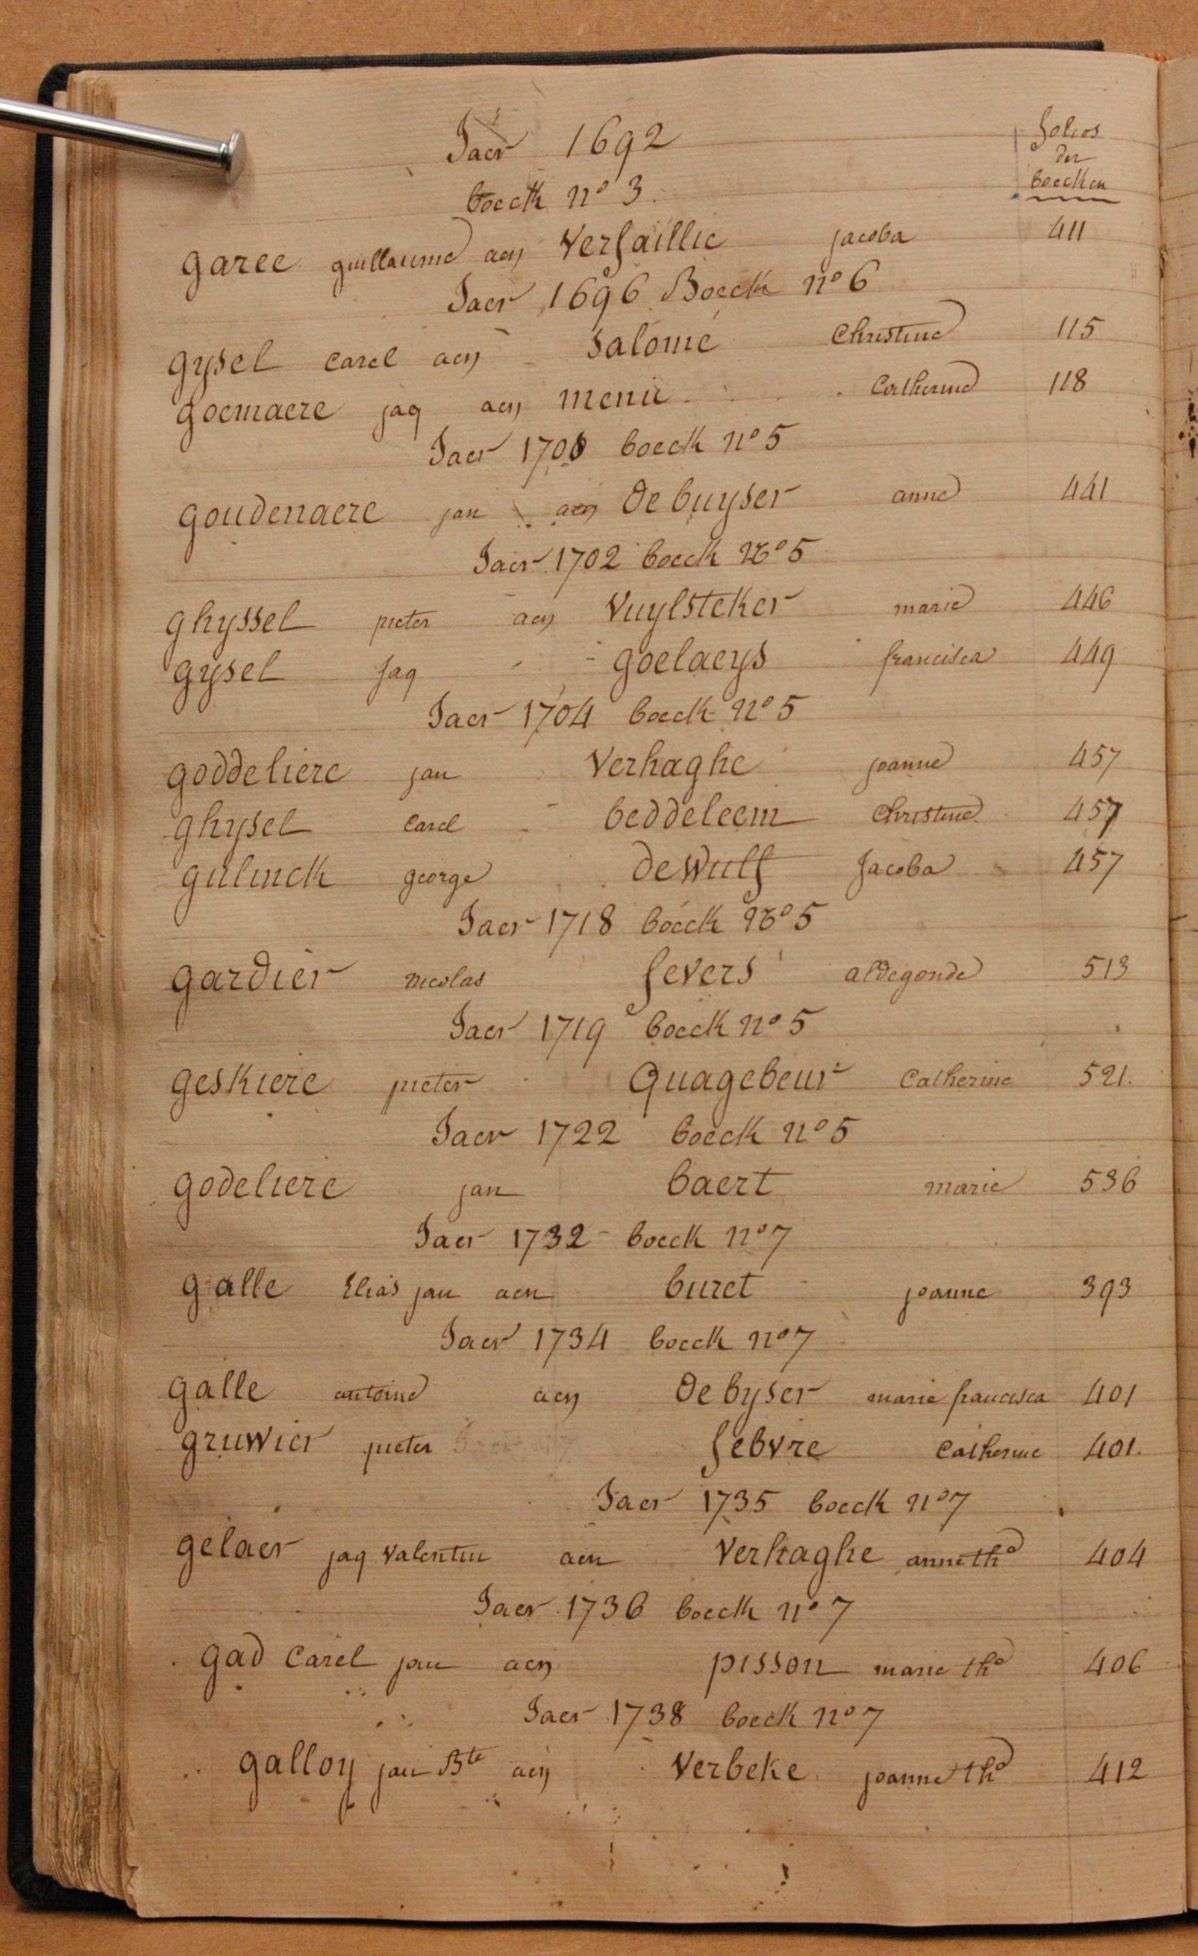 Jaer 1692
folios
der
boecken
boeck n° 3.
garee guillaume aen Versaillie jacoba 411
Jaer 1696 Boeck n° 6
gysel Carel aen Salomé Christine 115
goemaere jaq aen menu Catherine 118
Jaer 1700 boeck n° 5
goudenaere jan aen de buyser anne 441
Jaer 1702 boeck N° 5
ghyssel pieter aen Vuylsteker marie 446
gysel Jaq - goelaeys francisca 449
Jaer 1704 boeck N° 5
goddeliere jan Verhaghe joanne 457
ghysel Carel - beddeleem Christine 457
gulinck george dewulf Jacoba 457
Jaer 1718 boeck N° 5
gardier nicolas severs aldegonde 513
Jaer 1719 boeck n° 5
geskiere pieter Quagebeur Catherine 521.
Jaer 1722 boeck n° 5
godeliere jan baert marie 536
Jaer 1732 - boeck n° 7
galle Elias jan aen buret joanne 393
Jaer 1734 boeck n° 7
galle antoine aen de byser marie francisca 401
gruwier pieter febvre Catherine 401.
Jaer 1735 boeck n° 7
gelaer jaq Valentin aen Verhaghe anne the 404
Jaer 1736 boeck n° 7
gad Carel jan aen pisson marie the 406
Jaer 1738 boeck n° 7
galloy jan Bte aen Verbeke joanne the 412